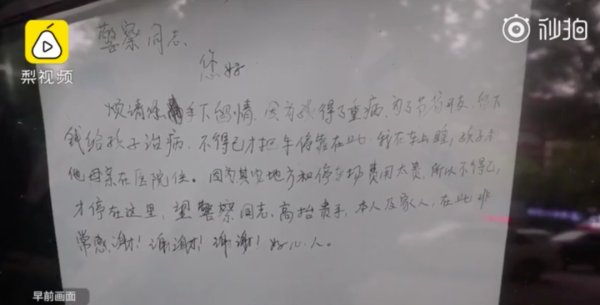 梨视频
秒拍
警察同志
您好
烦请您手下留情,因为孩得了重病,为了节省开支,
钱给孩子治病,不得已才把车停靠在此,我在车上睡,孩子和
他母亲在医院住。因为其它地方和停车场费用太贵,所以不得已,
才停在这里,望警察同志,高抬贵手,本人及家人,在此非
常感谢!谢谢!谢谢!好心人。
早前画面